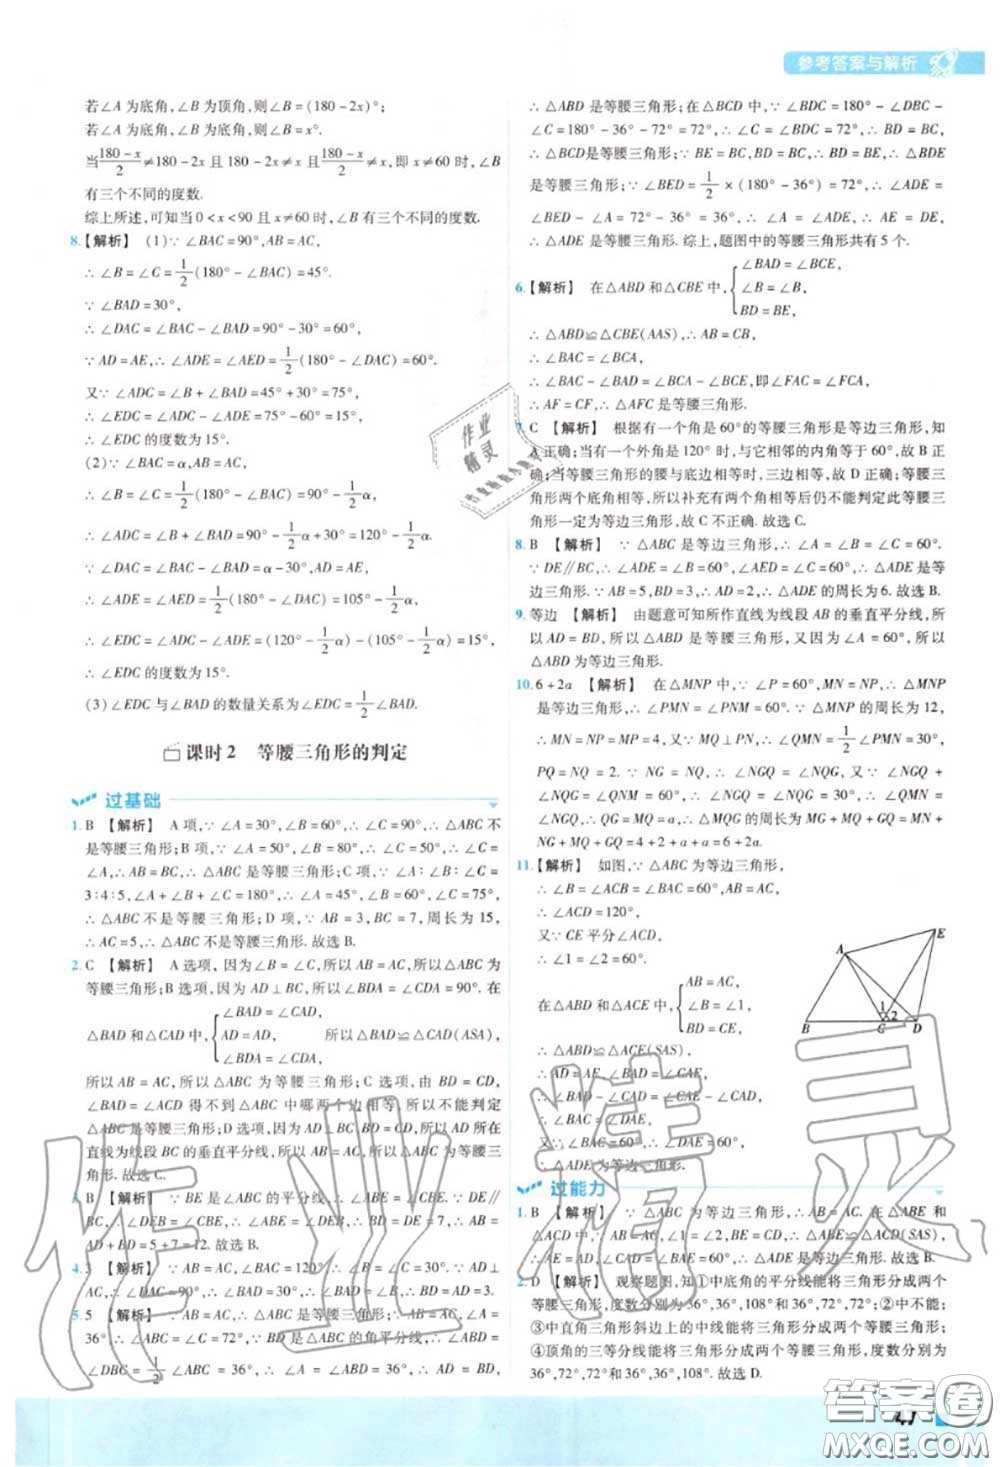 参考答案与解析
若∠A为底角,∠B为顶角,则∠B=(180-2x)°;
若∠A为底角,∠B为底角,则∠B=x°.
当(180-x)/2≠180-2x且180-2x≠x且(180-x)/2≠x,即x≠60时,∠B
有三个不同的度数.
综上所述,可知当0<x<90且x≠60时,∠B有三个不同的度数.
8.【解析】 (1)∵∠BAC=90°,AB=AC,
∴∠B=∠C=1/2(180°-∠BAC)=45°.
∵∠BAD=30°,
∴∠DAC=∠BAC-∠BAD=90°-30°=60°.
∵AD=AE,∴∠ADE=∠AED=1/2(180°-∠DAC)=60°.
又∵∠ADC=∠B+∠BAD=45°+30°=75°,
∴∠EDC=∠ADC-∠ADE=75°-60°=15°,
∴∠EDC的度数为15°.
(2)∵∠BAC=α,AB=AC,
∴∠B=∠C=1/2(180°-∠BAC)=90°-1/2α,
∴∠ADC=∠B+∠BAD=90°-1/2α+30°=120°-1/2α.
∵∠DAC=∠BAC-∠BAD=α-30°,AD=AE,
∴∠ADE=∠AED=1/2(180°-∠DAC)=105°-1/2α,
∴∠EDC=∠ADC-∠ADE=(120°-1/2α)-(105°-1/2α)=15°,
∴∠EDC的度数为15°.
(3)∠EDC与∠BAD的数量关系为∠EDC=1/2∠BAD.
课时2 等腰三角形的判定
过基础
1. B 【解析】 A项,∵∠A=30°,∠B=60°,∴∠C=90°,∴△ABC不
是等腰三角形;B项,∵∠A=50°,∠B=80°,∴∠C=50°,∴∠A=
∠C,∴AB=BC,∴△ABC是等腰三角形;C项,∵∠A:∠B:∠C=
3:4:5,∠A+∠B+∠C=180°,∴∠A=45°,∠B=60°,∠C=75°,
∴△ABC不是等腰三角形;D项,∵AB=3,BC=7,周长为15,
∴AC=5,∴△ABC不是等腰三角形.故选B.
2. C 【解析】 A选项,因为∠B=∠C,所以AB=AC,所以△ABC为
等腰三角形;B选项,因为AD⊥BC,所以∠BDA=∠CDA=90°.在
△BAD和△CAD中,{∠BAD=∠CAD, AD=AD, ∠BDA=∠CDA, 所以△BAD≌△CAD(ASA),
所以AB=AC,所以△ABC为等腰三角形;C选项,由BD=CD,
∠BAD=∠ABC得不到△ABC中哪两个边相等,所以不能判定
△ABC为等腰三角形;D选项,因为AD⊥BC,BD=CD,所以AD所在
直线为线段BC的垂直平分线,所以AB=AC,所以△ABC为等腰三
角形.故选C.
3. B 【解析】 ∵BE是∠ABC的平分线,∴∠ABE=∠CBE.∵DE∥
BC,∴∠DEB=∠CBE,∴∠ABE=∠DEB,∴BD=DE=7,∴AB=
AD+BD=5+7=12.故选B.
4. 3 【解析】
∴∠DAC=90°
5. 5 【解析】 ∵AB=AC,∴△ABC是等腰三角形;∵AB=AC,∠A=
36°,∴∠ABC=∠C=72°,∵BD是∠ABC的角平分线,∴∠ABD=
∠DBC=1/2∠ABC=36°,∴∠A=∠ABD=36°,∴AD=BD,
∴△ABD是等腰三角形;在△BCD中,∵∠BDC=180°-∠DBC-
∠C=180°-36°-72°=72°,∴∠C=∠BDC=72°,∴BD=BC,
∴△BCD是等腰三角形;∵BE=BC,∴BD=BE,∴△BDE
是等腰三角形;∵∠BED=1/2×(180°-36°)=72°,∴∠ADE=
∠BED-∠A=72°-36°=36°,∴∠A=∠ADE,∴AE=DE,
∴△ADE是等腰三角形.综上,题图中的等腰三角形共有5个.
6.【解析】 在△ABD和△CBE中,{∠BAD=∠BCE, ∠B=∠B, BD=BE,
∴△ABD≌△CBE(AAS),∴AB=CB,
∴∠BAC=∠BCA,
∴∠BAC-∠BAD=∠BCA-∠BCE,即∠FAC=∠FCA,
∴AF=CF,∴△AFC是等腰三角形.
7. C 【解析】 根据有一个角是60°的等腰三角形是等边三角形,知
A正确;当有一个外角是120°时,与它相邻的内角等于60°,故B正
确;当等腰三角形的腰与底边相等时,三边相等,故D正确;等腰三
角形两个底角相等,所以补充有两个角相等后仍不能判定此等腰三
角形一定为等边三角形,故C不正确.故选C.
8. B 【解析】 ∵△ABC是等边三角形,∴∠A=∠B=∠C=60°.
∵DE∥BC,∴∠ADE=∠B=60°,∠AED=∠C=60°,∴△ADE是等
边三角形.∵AB=5,BD=3,∴AD=2,∴△ADE的周长为6.故选B.
9. 等边 【解析】 由题意可知所作直线为线段AB的垂直平分线,所
以AD=BD,所以△ABD是等腰三角形,又因为∠A=60°,所以
△ABD为等边三角形.
10. 6+2a 【解析】 在△MNP中,∵∠P=60°,MN=NP,∴△MNP
是等边三角形,∴∠PMN=∠PNM=60°.∵△MNP的周长为12,
∴MN=NP=MP=4.又∵MQ⊥PN,∴∠QMN=1/2∠PMN=30°,
PQ=NQ=2.∵NG=NQ,∴∠NGQ=∠NQG.又∵∠NGQ+
∠NQG=∠PNM=60°,∴∠NGQ=∠NQG=30°,∴∠QMN=
∠NGQ,∴QG=MQ=a,∴△MGQ的周长为MG+MQ+QG=MN+
NG+MQ+QG=4+2+a+a=6+2a.
11.【解析】 如图,∵△ABC为等边三角形,
∴∠B=∠ACB=∠BAC=60°,AB=AC,
∴∠ACD=120°,
又∵CE平分∠ACD,
∴∠1=∠2=60°.
在△ABD和△ACE中,{AB=AC, ∠B=∠1, BD=CE,
∴△ABD≌△ACE(SAS),
∴AD=AE,∠BAD=∠CAE,
∴∠BAD-∠CAD=∠CAE-∠CAD,
∴∠BAC=∠DAE,
∵∠BAC=60°,∴∠DAE=60°,
∴△ADE为等边三角形.
A E B C D 1 2
过能力
1. B 【解析】 ∵△ABC为等边三角形,∴AB=AC.在△ABE和
2. D 【解析】 观察题图,知①中底角的平分线能将三角形分成两个
等腰三角形,度数分别为36°,36°,108°和36°,72°,72°;②中不能;
③中直角三角形斜边上的中线能将三角形分成两个等腰三角形;
④顶角的三等分线能将三角形分成两个等腰三角形,度数分别为
36°,72°,72°和36°,36°,108°.故选D.
作业精灵
答案圈
MXQE.COM
41